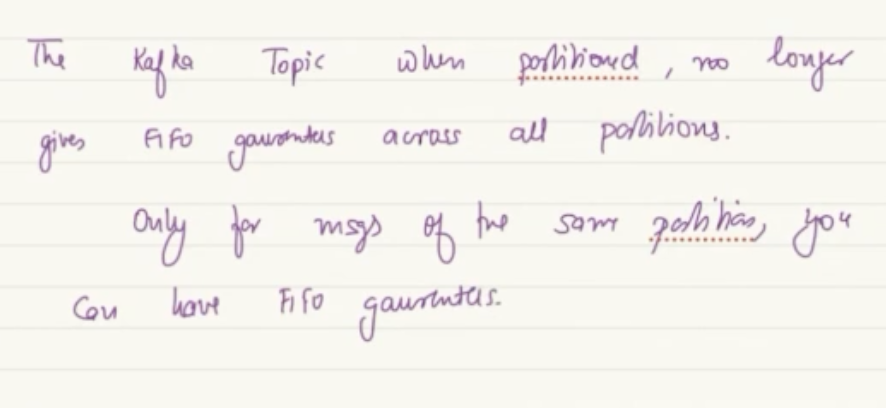 The Kafka Topic when partitioned, no longer
gives FIFO gaurantees across all partitions.
Only for msgs of the same partition, you
Can have FIFO gaurantees.